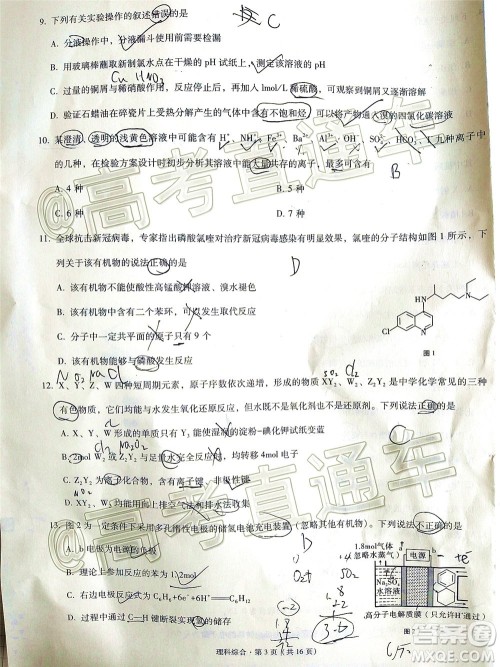 9. 下列有关实验操作的叙述错误的是
C
A. 分液操作中，分液漏斗使用前需要检漏
B. 用玻璃棒蘸取新制氯水点在干燥的 pH 试纸上，测定该溶液的 pH
Cu HNO₃
C. 过量的铜屑与稀硝酸作用，反应停止后，再加入 1mol/L 稀硫酸，可观察到铜屑又逐渐溶解
D. 验证石蜡油在碎瓷片上受热分解产生的气体中含有不饱和烃，可以将气体通入溴的四氯化碳溶液
10. 某澄清、透明的浅黄色溶液中可能含有 H⁺、NH₄⁺、Fe²⁺、Ba²⁺、Al³⁺、SO₄²⁻、HCO₃⁻、I⁻ 九种离子中
的几种，在检验方案设计时初步分析其溶液中能大量共存的离子，最多可含有
B
A. 4 种 B. 5 种
C. 6 种 D. 7 种
11. 全球抗击新冠病毒，专家指出磷酸氯喹对治疗新冠病毒感染有明显效果，氯喹的分子结构如图 1 所示，下
列关于该有机物的说法正确的是
D
A. 该有机物不能使酸性高锰酸钾溶液、溴水褪色
B. 该有机物中含有二个苯环，可以发生取代反应
C. 分子中一定共平面的原子只有 9 个
D. 该有机物能够与磷酸发生反应
Cl HN N N
图 1
NO₂ NaCl SO₂ Cl₂
12. X、Y、Z、W 四种短周期元素，原子序数依次递增，形成的物质 XY₂、W₂、Z₂Y₂ 是中学化学常见的三种
有色物质，它们均能与水发生氧化还原反应，但水既不是氧化剂也不是还原剂。下列说法正确的是
A. X、Y、W 形成的单质只有 Y₂ 能使湿润的淀粉—碘化钾试纸变蓝
Cl₂ Na₂O₂
B. 2mol W₂ 或者 Z₂Y₂ 与足量水完全反应，均转移 4mol 电子
C. Z₂Y₂ 为离子化合物，含有离子键、非极性键
NO₂
D. XY₂ 可以实现用排空气法和排水法收集
13. 图 2 为一定条件下采用多孔惰性电极的储氢电池充电装置（忽略其他有机物）。下列说法不正确的是
A. b 电极为电源的负极
B. 理论上参加反应的苯为 1.2mol
C. 阴极的电极反应式为 C₆H₆+6e⁻+6H⁺=C₆H₁₂
D. 过程中通过 C—H 键断裂实现氢的储存
1.8mol气体
（忽略水蒸气）
电源
Na₂SO₄
溶液
高分子电解质膜（只允许 H⁺通过）
图 2
理科综合·第 3 页（共 16 页）
@高考直通车
@高考直通车